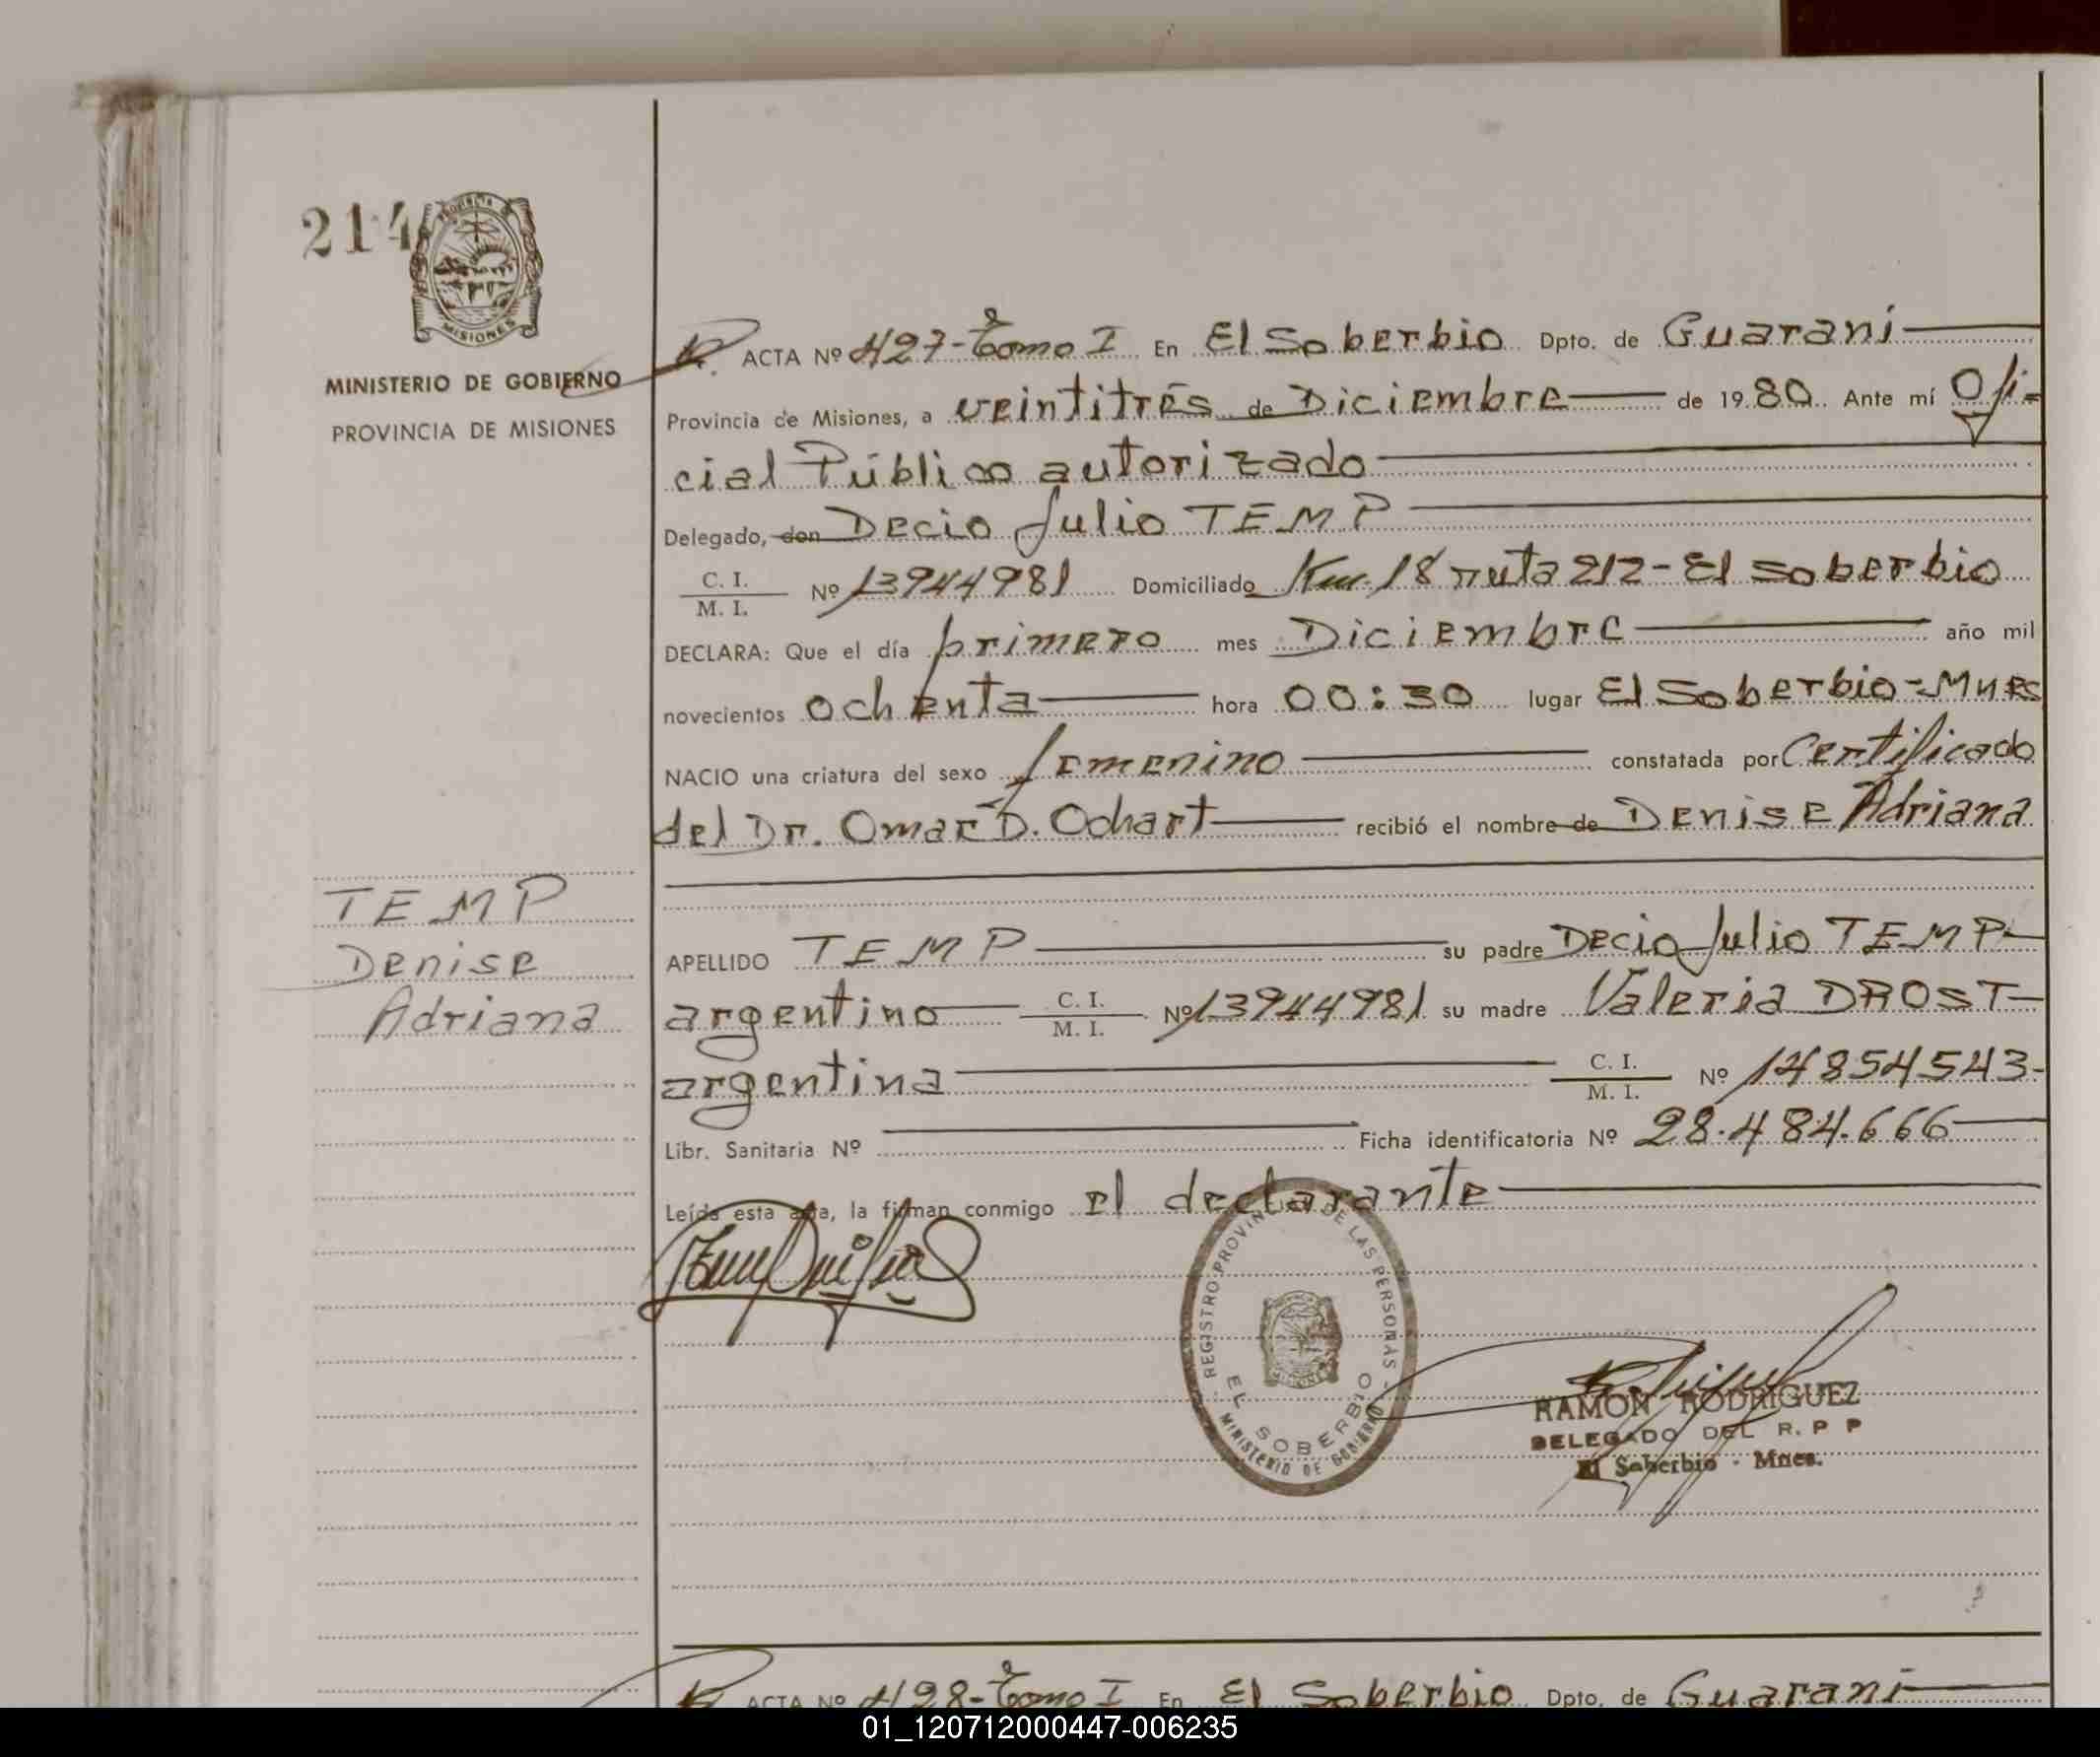 214
PROVINCIA
MISIONES
MINISTERIO DE GOBIERNO
PROVINCIA DE MISIONES
ACTA Nº 427-Tomo I En El Soberbio Dpto. de Guaraní
Provincia de Misiones, a veintitrés de Diciembre de 1980. Ante mí Ofi=
cial Público autorizado
Delegado, don Decio Julio TEMP
C. I.
M. I. Nº 13944981 Domiciliado Km. 18 ruta 212-El Soberbio
DECLARA: Que el día primero mes Diciembre año mil
novecientos ochenta hora 00:30 lugar El Soberbio-Mnes
NACIO una criatura del sexo femenino constatada por Certificado
del Dr. Omar D. Ochart recibió el nombre de Denise Adriana
TEMP
Denise
Adriana
APELLIDO TEMP su padre Decio Julio TEMP-
argentino C. I.
M. I. Nº 13944981 su madre Valeria DROST-
argentina C. I.
M. I. Nº 14854543-
Libr. Sanitaria Nº Ficha identificatoria Nº 28.484.666
Leída esta acta, la firman conmigo el declarante
REGISTRO PROVINCIAL DE LAS PERSONAS -
EL SOBERBIO
MINISTERIO DE GOBIERNO
RAMON RODRIGUEZ
DELEGADO DEL R. P P
El Soberbio - Mnes.
ACTA Nº 428-Tomo I En El Soberbio Dpto. de Guaraní
01_120712000447-006235